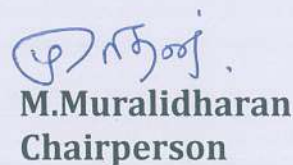 M.Muralidharan
Chairperson